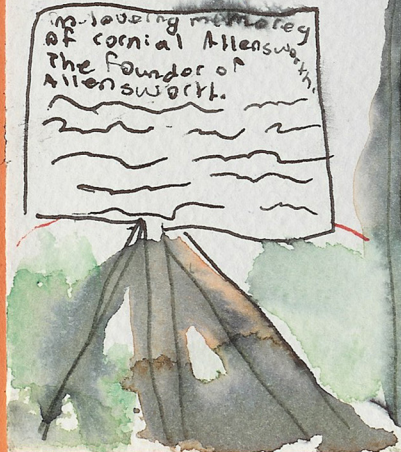 in loveing memorey
of cornial Allensworth.
The founder of
Allensworth.